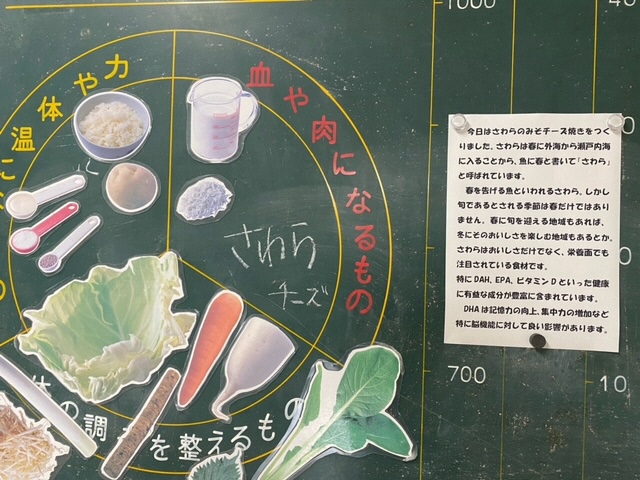 力や体温に
血や肉になるもの
さわら
チーズ
の調子を整えるもの
1000
700
10
今日はさわらのみそチーズ焼きをつく
りました。さわらは春に外海から瀬戸内海
に入ることから、魚に春と書いて「さわら」
と呼ばれています。
春を告げる魚といわれるさわら。しかし
旬であるとされる季節は春だけではあり
ません。春に旬を迎える地域もあれば、
冬にそのおいしさを楽しむ地域もあるとか。
さわらはおいしさだけでなく、栄養面でも
注目されている食材です。
特にDAH、EPA、ビタミンDといった健康
に有益な成分が豊富に含まれています。
DHAは記憶力の向上、集中力の増加など
特に脳機能に対して良い影響があります。